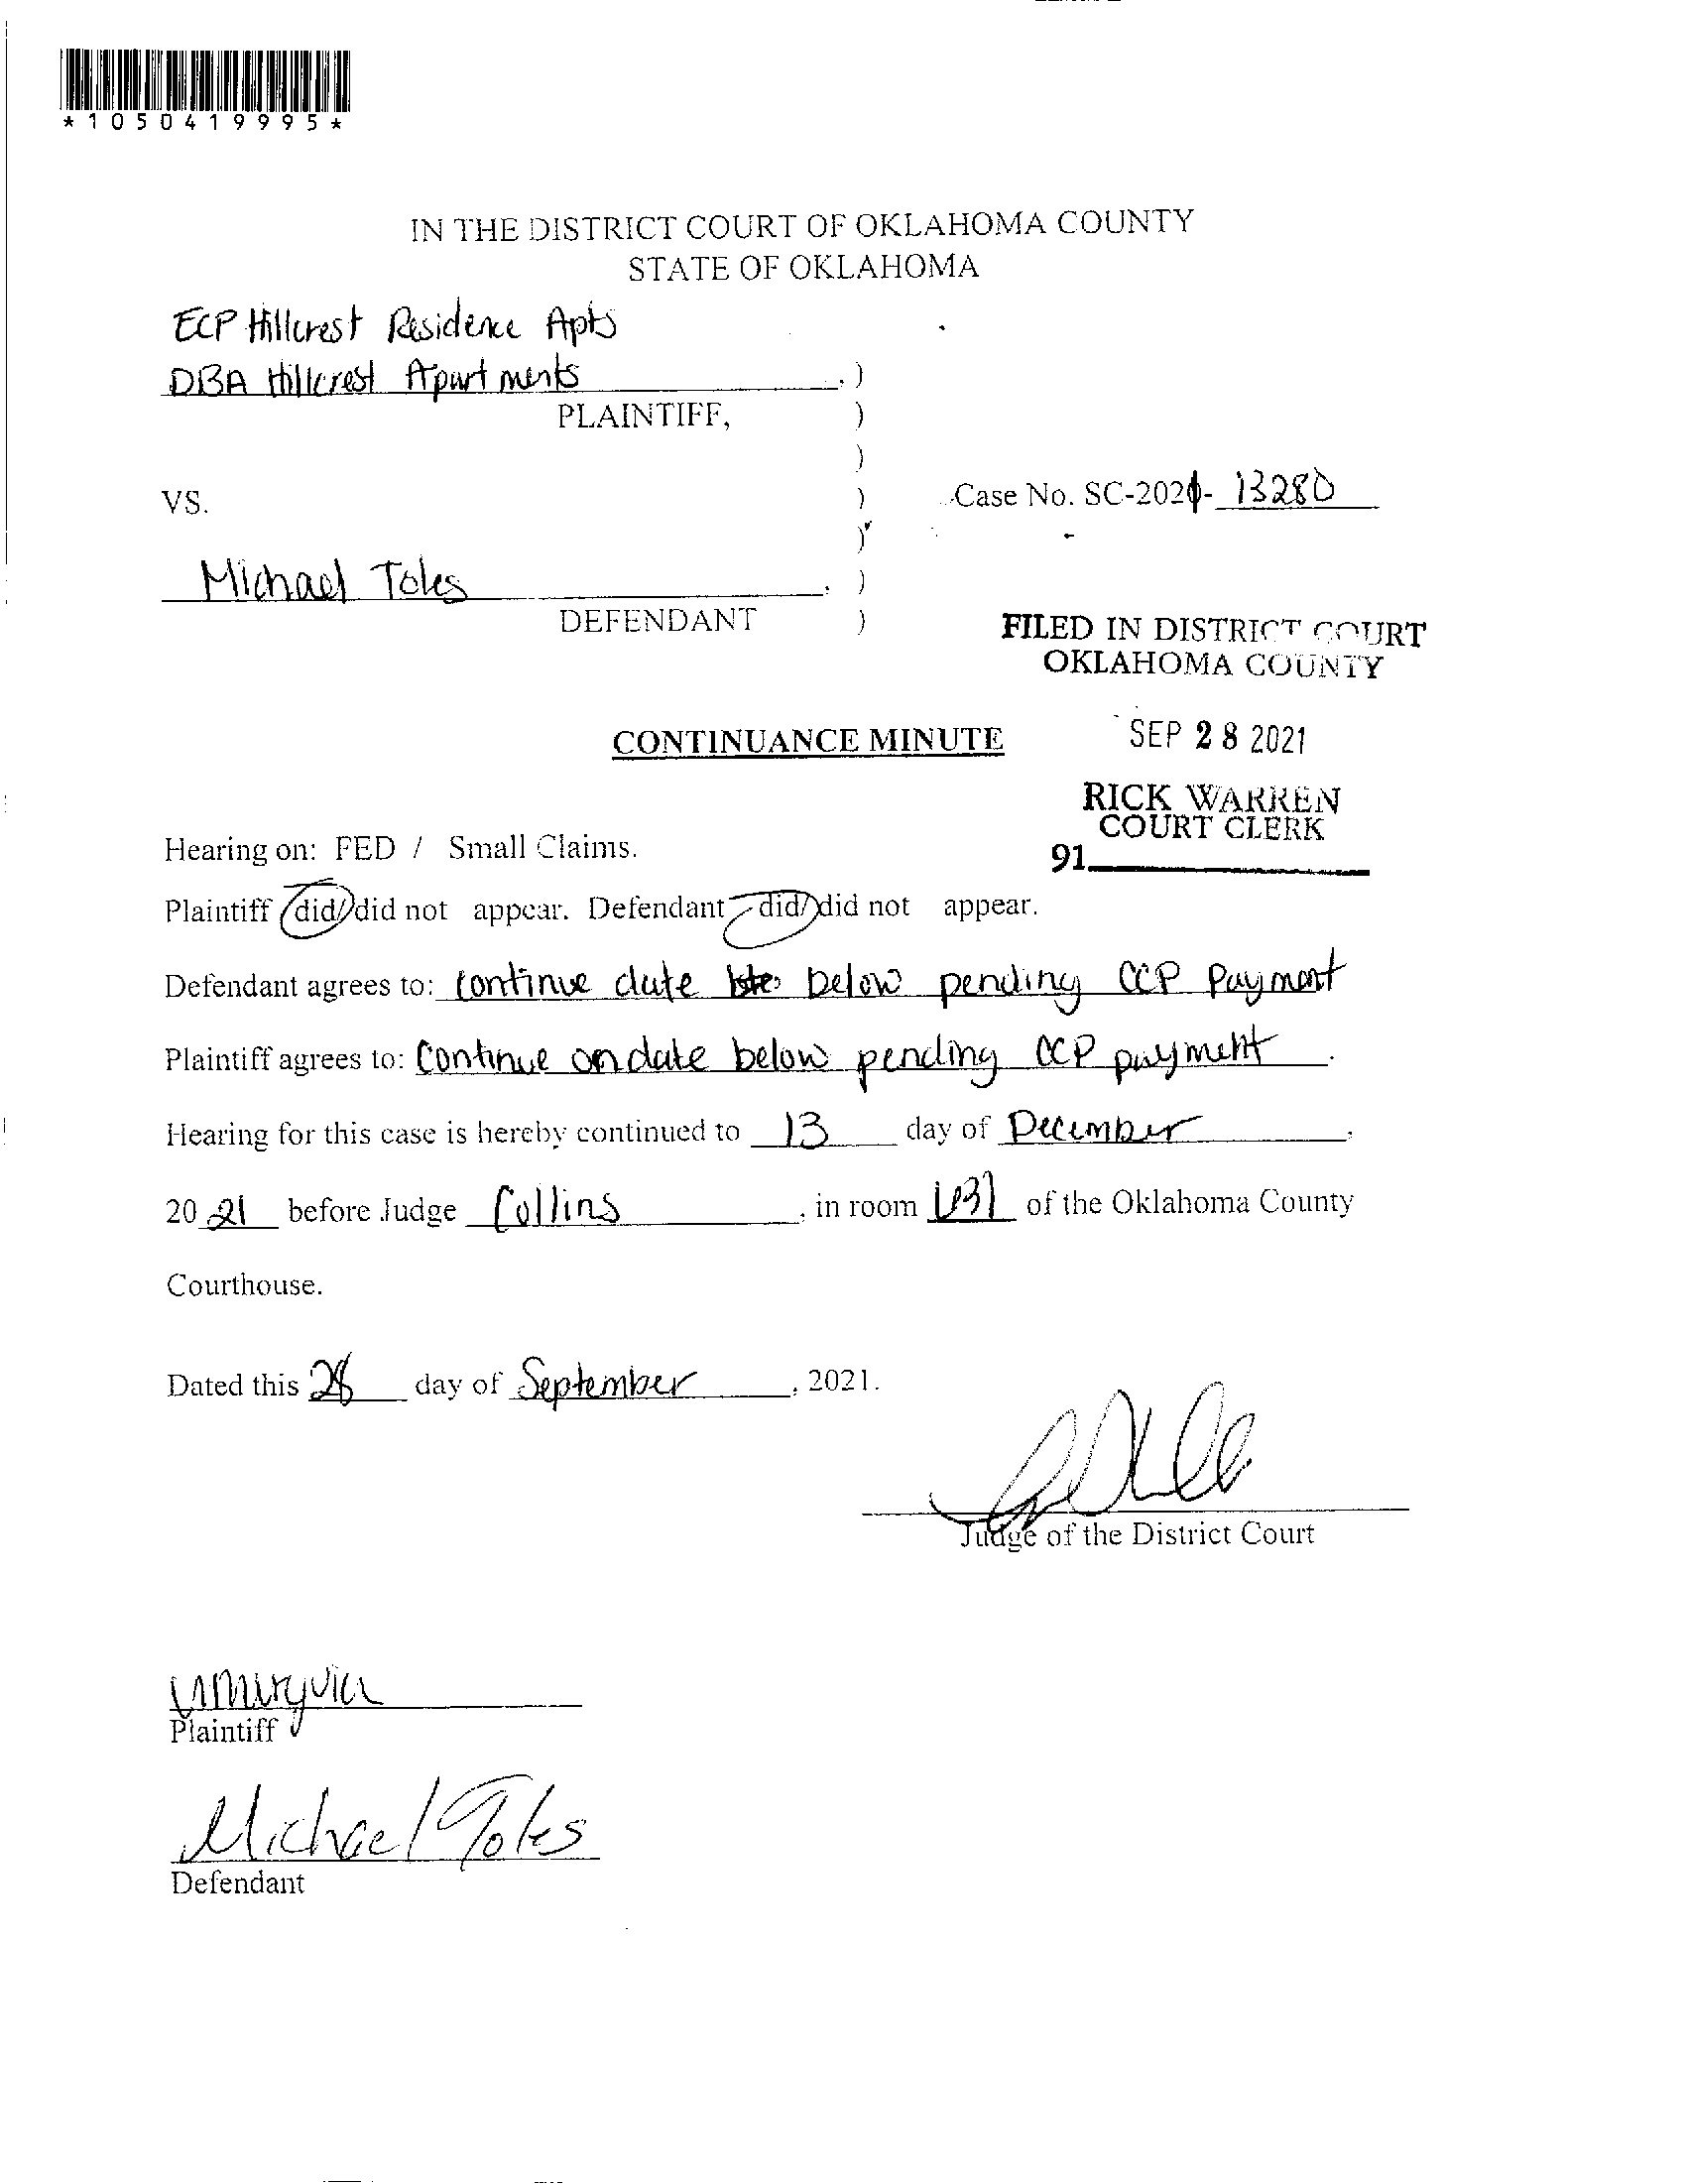 *1050419995*
IN THE DISTRICT COURT OF OKLAHOMA COUNTY
STATE OF OKLAHOMA
ECP Hillcrest Residence Apts
DBA Hillcrest Apartments , )
PLAINTIFF, )
)
VS. ) Case No. SC-2021- 13280
)
Michael Toles , )
DEFENDANT )
FILED IN DISTRICT COURT
OKLAHOMA COUNTY
CONTINUANCE MINUTE
SEP 28 2021
RICK WARREN
COURT CLERK
91
Hearing on: FED / Small Claims.
Plaintiff did/did not appear. Defendant did/did not appear.
Defendant agrees to: Continue date below pending CCP Payment
Plaintiff agrees to: Continue on date below pending CCP payment.
Hearing for this case is hereby continued to 13 day of December,
20 21 before Judge Collins, in room of the Oklahoma County
Courthouse.
Dated this 28 day of September, 2021.
Judge of the District Court
Plaintiff
Michael Toles
Defendant